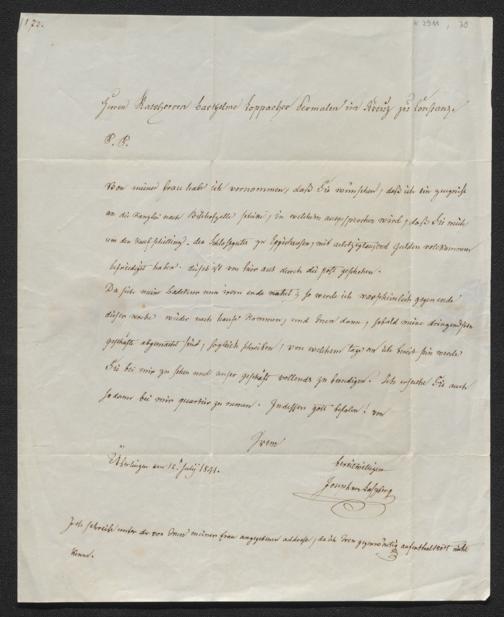 172.
Herrn Ratsherren Macaire Loppacher dermalen im Kreuz zu Constanz
P. P.
Von meiner frau habe ich vernommen, daß Sie wünschen, daß ich ein zeugniß
an die Kanzlei nach Bischofzelle schike, in welchem ausgesprochen wird, daß Sie mich
um den Kaufschilling des Schlossguts zu Eppishausen, mit achtzigtausend gulden vollkommen
befriediget haben. dieses ist von hier aus durch die post geschehen.
Da sich meine Badekur nun irem ende nahet, so werde ich warscheinlich gegen ende
dieser woche wieder nach hause kommen, und Inen dann, sobald meine dringendsten
geschäfte abgemacht sind, sogleich schreiben, von welchem tage an ich bereit sein werde
Sie bei mir zu sehen und unser geschäft vollends zu beendigen. Ich ersuche Sie auch
sodann bei mir quartier zu nemen. Indessen gott befolen! von
Irem
bereitwilligen
Überlingen am 12. July 1841.
Joseph von Laßberg
Ich schreibe unter der von Inen meiner frau angegebenen addresse, da ich Iren gegenwärtig aufenthaltsort nicht
kenne.